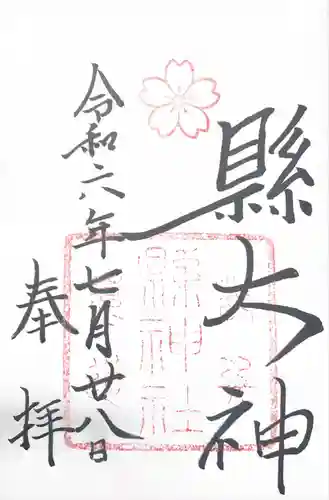 縣大神
令和六年七月廿八日
奉拝
縣神社